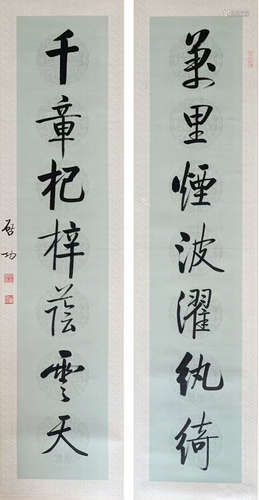 萬里煙波濯紈綺
千章杞梓蔭雲天
啟功